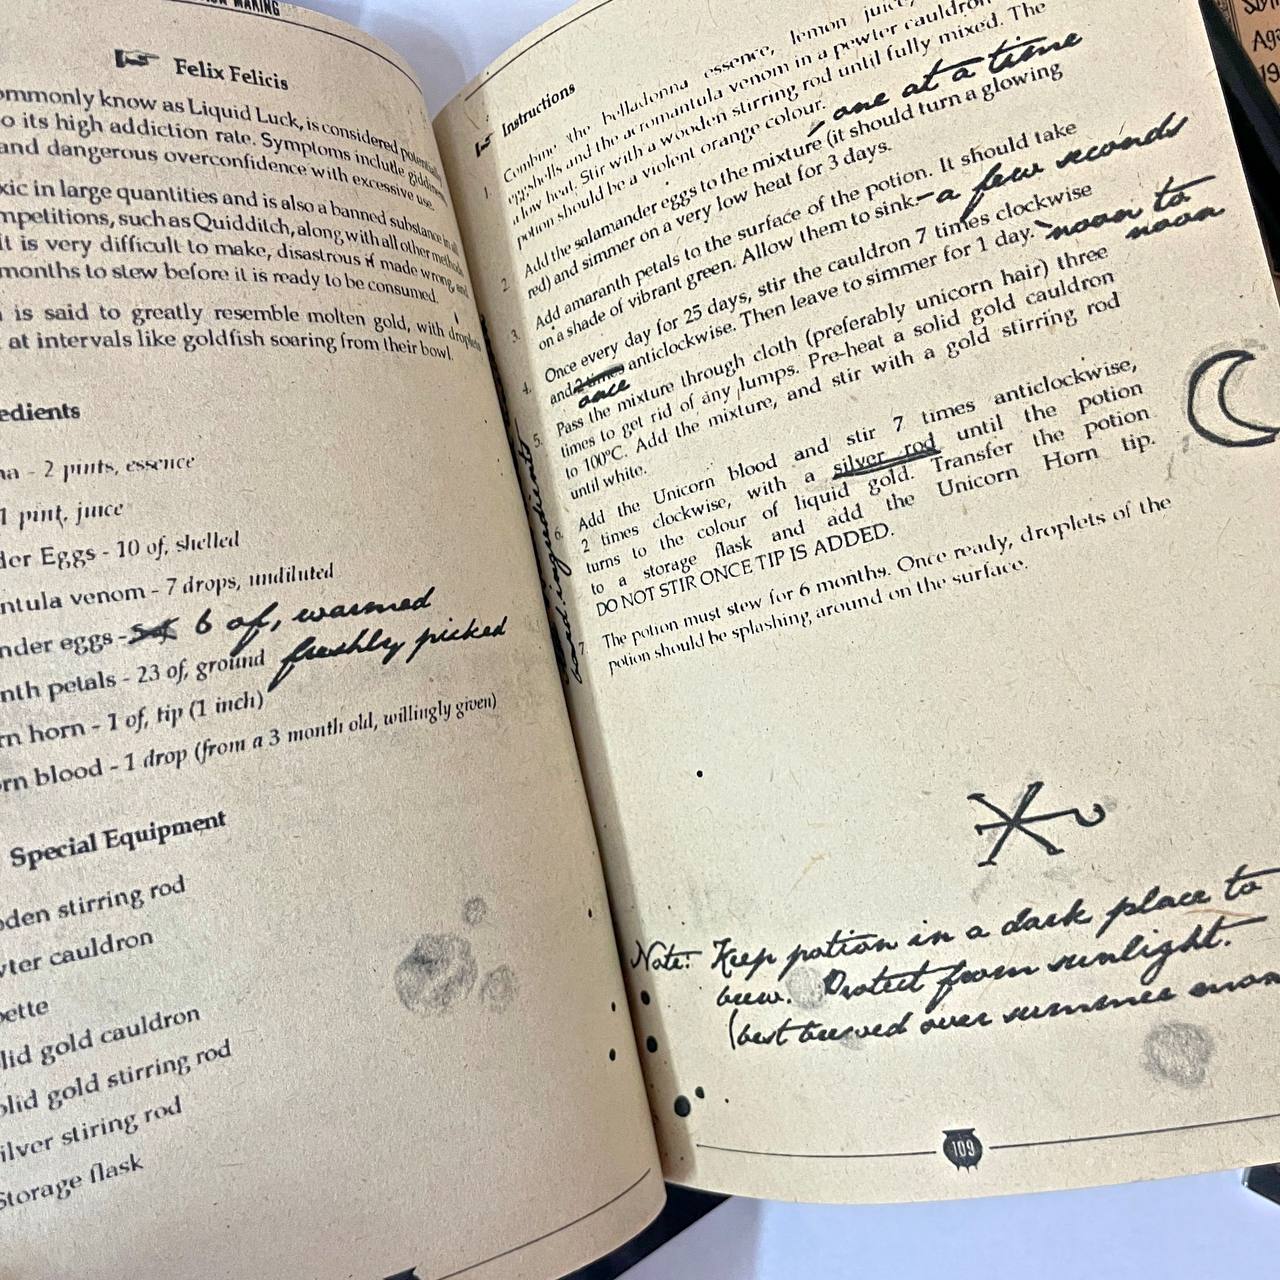 MAKING
Felix Felicis
ommonly know as Liquid Luck, is considered potentially
o its high addiction rate. Symptoms include giddiness
and dangerous overconfidence with excessive use.
xic in large quantities and is also a banned substance in all
mpetitions, such as Quidditch, along with all other methods
It is very difficult to make, disastrous if made wrong, and
months to stew before it is ready to be consumed.
is said to greatly resemble molten gold, with droplets
at intervals like goldfish soaring from their bowl.
edients
na - 2 pints, essence
1 pint, juice
der Eggs - 10 of, shelled
ntula venom - 7 drops, undiluted
nder eggs - 6 of, warmed
nth petals - 23 of, ground freshly picked
rn horn - 1 of, tip (1 inch)
rn blood - 1 drop (from a 3 month old, willingly given)
Special Equipment
oden stirring rod
wter cauldron
pette
lid gold cauldron
olid gold stirring rod
ilver stiring rod
Storage flask
ingredients
Instructions
1. Combine the belladonna essence, lemon juice,
eggshells and the acromantula venom in a pewter cauldron
a low heat. Stir with a wooden stirring rod until fully mixed. The
potion should be a violent orange colour. one at a time
2. Add the salamander eggs to the mixture (it should turn a glowing
red) and simmer on a very low heat for 3 days.
3. Add amaranth petals to the surface of the potion. It should take
on a shade of vibrant green. Allow them to sink. - a few seconds
4. Once every day for 25 days, stir the cauldron 7 times clockwise
and 2 times anticlockwise. Then leave to simmer for 1 day. noon to
once
noon
5. Pass the mixture through cloth (preferably unicorn hair) three
times to get rid of any lumps. Pre-heat a solid gold cauldron
to 100°C. Add the mixture, and stir with a gold stirring rod
until white.
6. Add the Unicorn blood and stir 7 times anticlockwise,
2 times clockwise, with a silver rod until the potion
turns to the colour of liquid gold. Transfer the potion
to a storage flask and add the Unicorn Horn tip.
DO NOT STIR ONCE TIP IS ADDED.
7. The potion must stew for 6 months. Once ready, droplets of the
potion should be splashing around on the surface.
Note: Keep potion in a dark place to
brew. Protect from sunlight.
(best brewed over summer
109